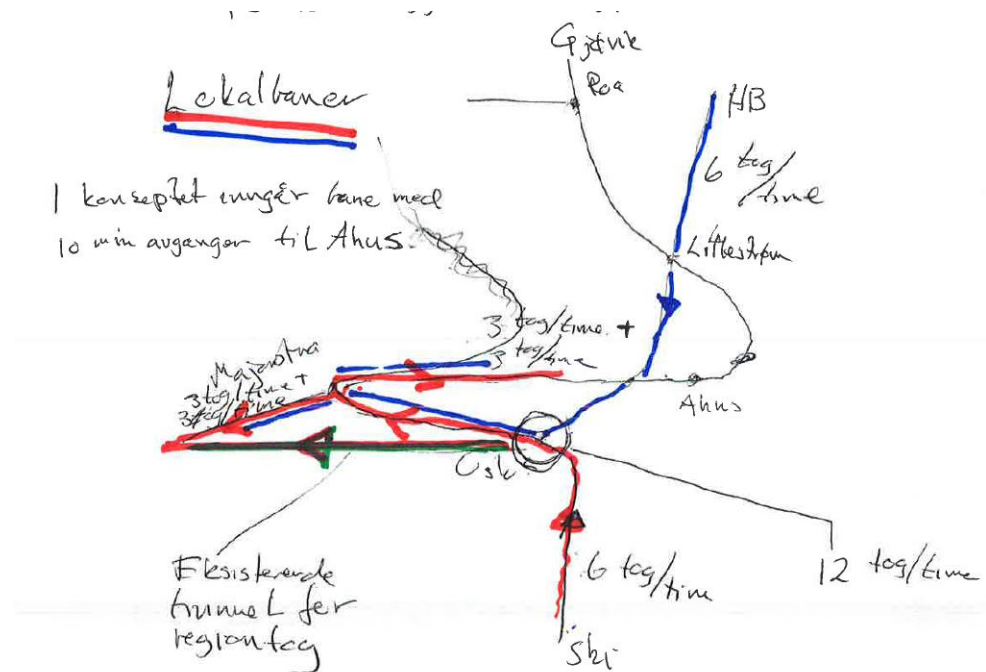 Gjøvik
Roa
HB
Lokalbaner
6 tog/time
I konseptet inngår bane med
10 min avganger til Ahus.
Lillestrøm
3 tog/time +
3 tog/time
Majorstua
3 tog/time +
3 tog/time
Ahus
Osl
Eksisterende
tunnel for
regiontog
6 tog/time
12 tog/time
Ski